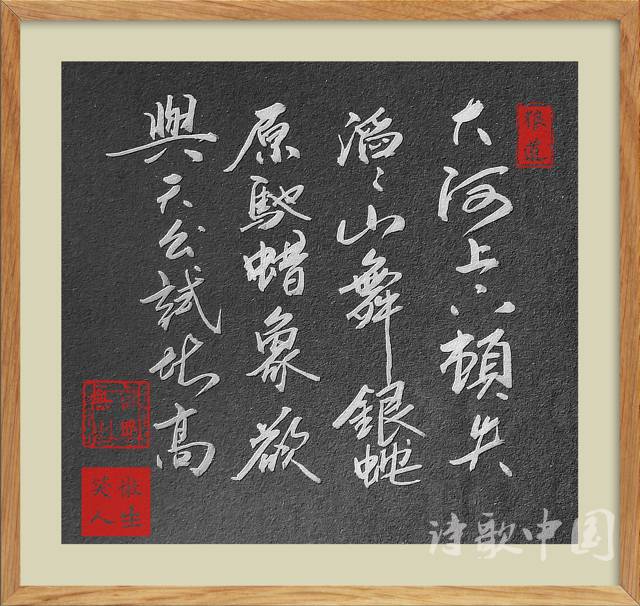 大河上下頓失
滔〻山舞銀蛇
原馳蜡象欲
與天公試比高
笑傲
人生
诗歌中国